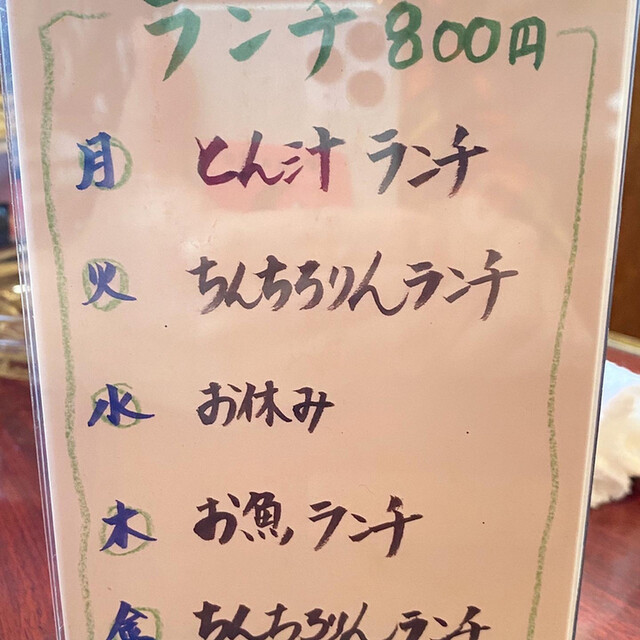 ランチ 800円
月 とん汁 ランチ
火 ちんちろりんランチ
水 お休み
木 お魚ランチ
金 ちんちろりんランチ